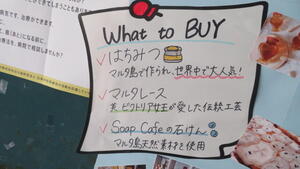 What to BUY
はちみつ
マルタ島で作られ、世界中で大人気!
マルタレース
英 ビクトリア女王が愛した伝統工芸
Soap Cafeの石けん
マルタ島天然素材を使用